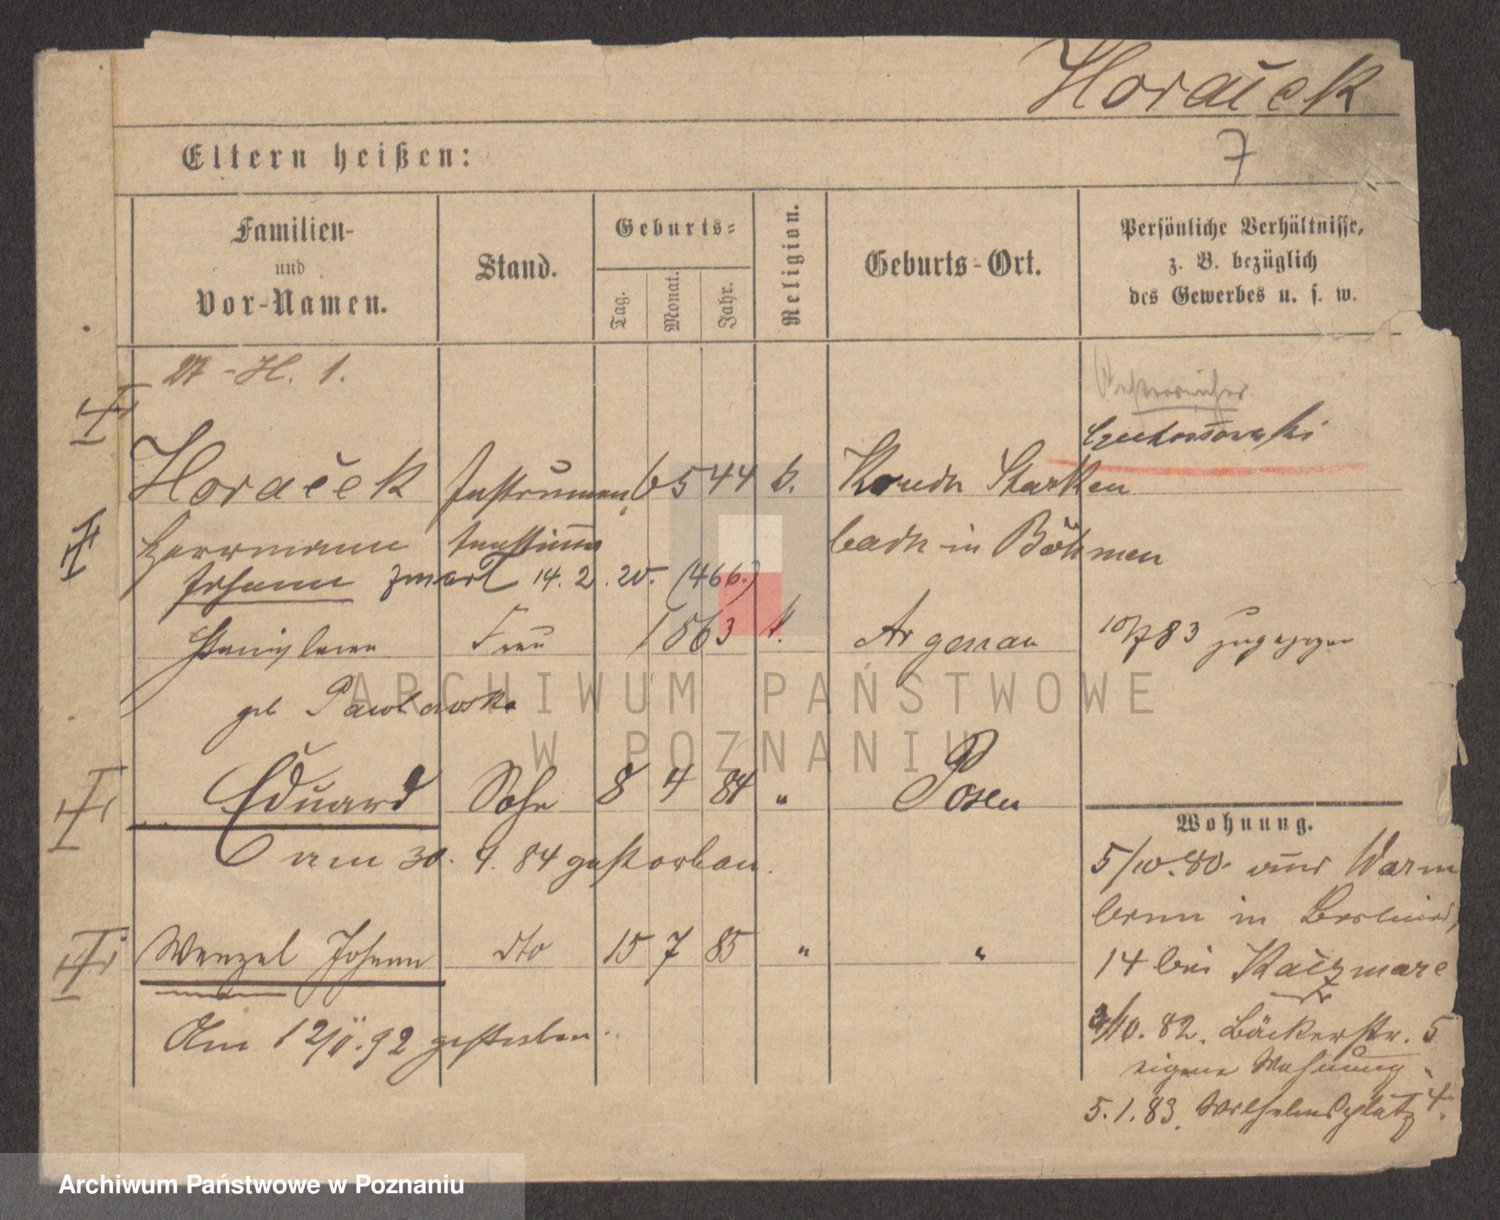 Horaček
7
Eltern heißen:
Familien-
und
Vor-Namen.
Stand.
Geburts-
Tag.
Monat.
Jahr.
Religion.
Geburts-Ort.
Persönliche Verhältnisse,
z. B. bezüglich
des Gewerbes u. s. w.
27-H. 1.
Oesterreicher
Horaček Instrumen 6 5 44 k.
Herrmann
Johann zmarł 14. 2. 20. (466.)
bade in Böhmen
Frau 1 5 63 k. Argenau 10/7 83 zugezogen
geb Pawlowska
Eduard Sohn 8 4 84 " Posen
am 30. 4. 84 gestorben.
Wenzel Johann dto 15 7 85 " "
Am 12/II. 92 gestorben.
Wohnung.
5/10. 80. aus Warm
brunn in
14 bei Kaczmare
k
/10. 82. Bäckerstr. 5
eigene Wohnung
5. 1. 83. Wilhelmsplatz 4.
ARCHIWUM PAŃSTWOWE
W POZNANIU
Archiwum Państwowe w Poznaniu